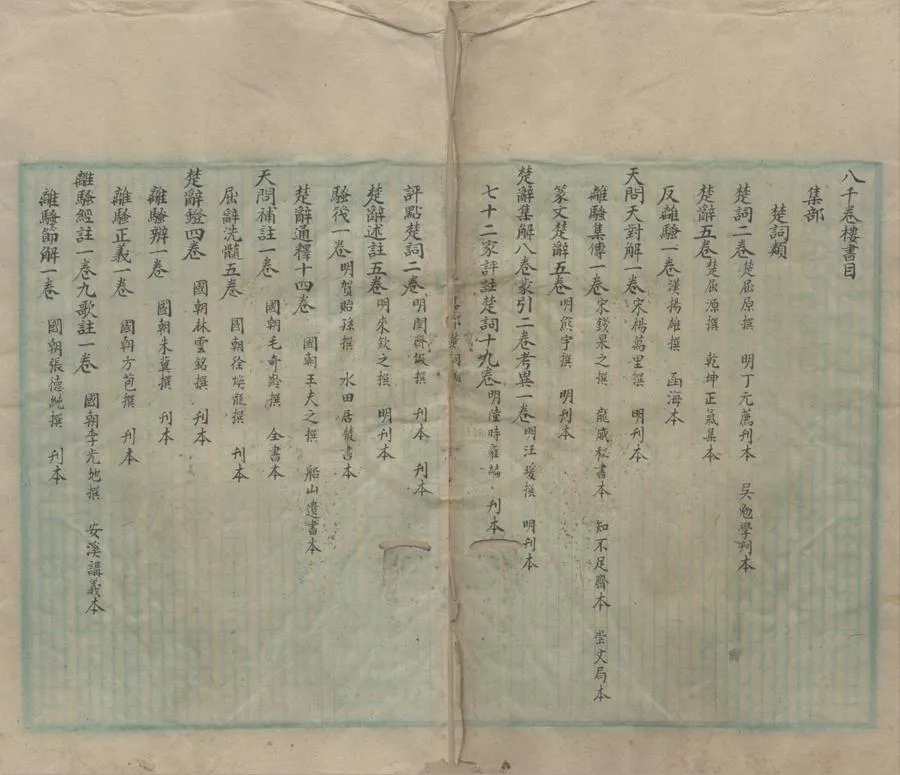 八千卷樓書目
集部
楚詞類
楚詞二卷 楚屈原撰 明丁元薦刊本 吳勉學刊本
楚辭五卷 楚屈原撰 乾坤正氣集本
反離騷一卷 漢揚雄撰 函海本
天問天對解一卷 宋楊萬里撰 明刊本
離騷集傳一卷 宋錢杲之撰 龍威秘書本 知不足齋本 崇文局本
篆文楚辭五卷 明熊宇撰 明刊本
楚辭集解八卷蒙引二卷考異一卷 明汪瑗撰 明刊本
七十二家評註楚詞十九卷 明陸時雍編 刊本
評點楚詞二卷 明閔齊伋撰 刊本 刊本
楚辭述註五卷 明來欽之撰 明刊本
騷筏一卷 明賀貽孫撰 水田居叢書本
楚辭通釋十四卷 國朝王夫之撰 船山遺書本
天問補註一卷 國朝毛奇齡撰 全書本
屈辭洗髓五卷 國朝徐煥龍撰 刊本
楚辭鐙四卷 國朝林雲銘撰 刊本
離騷辨一卷 國朝朱冀撰 刊本
離騷正義一卷 國朝方苞撰 刊本
離騷經註一卷九歌註一卷 國朝李光地撰 安溪講義本
離騷節解一卷 國朝張德純撰 刊本